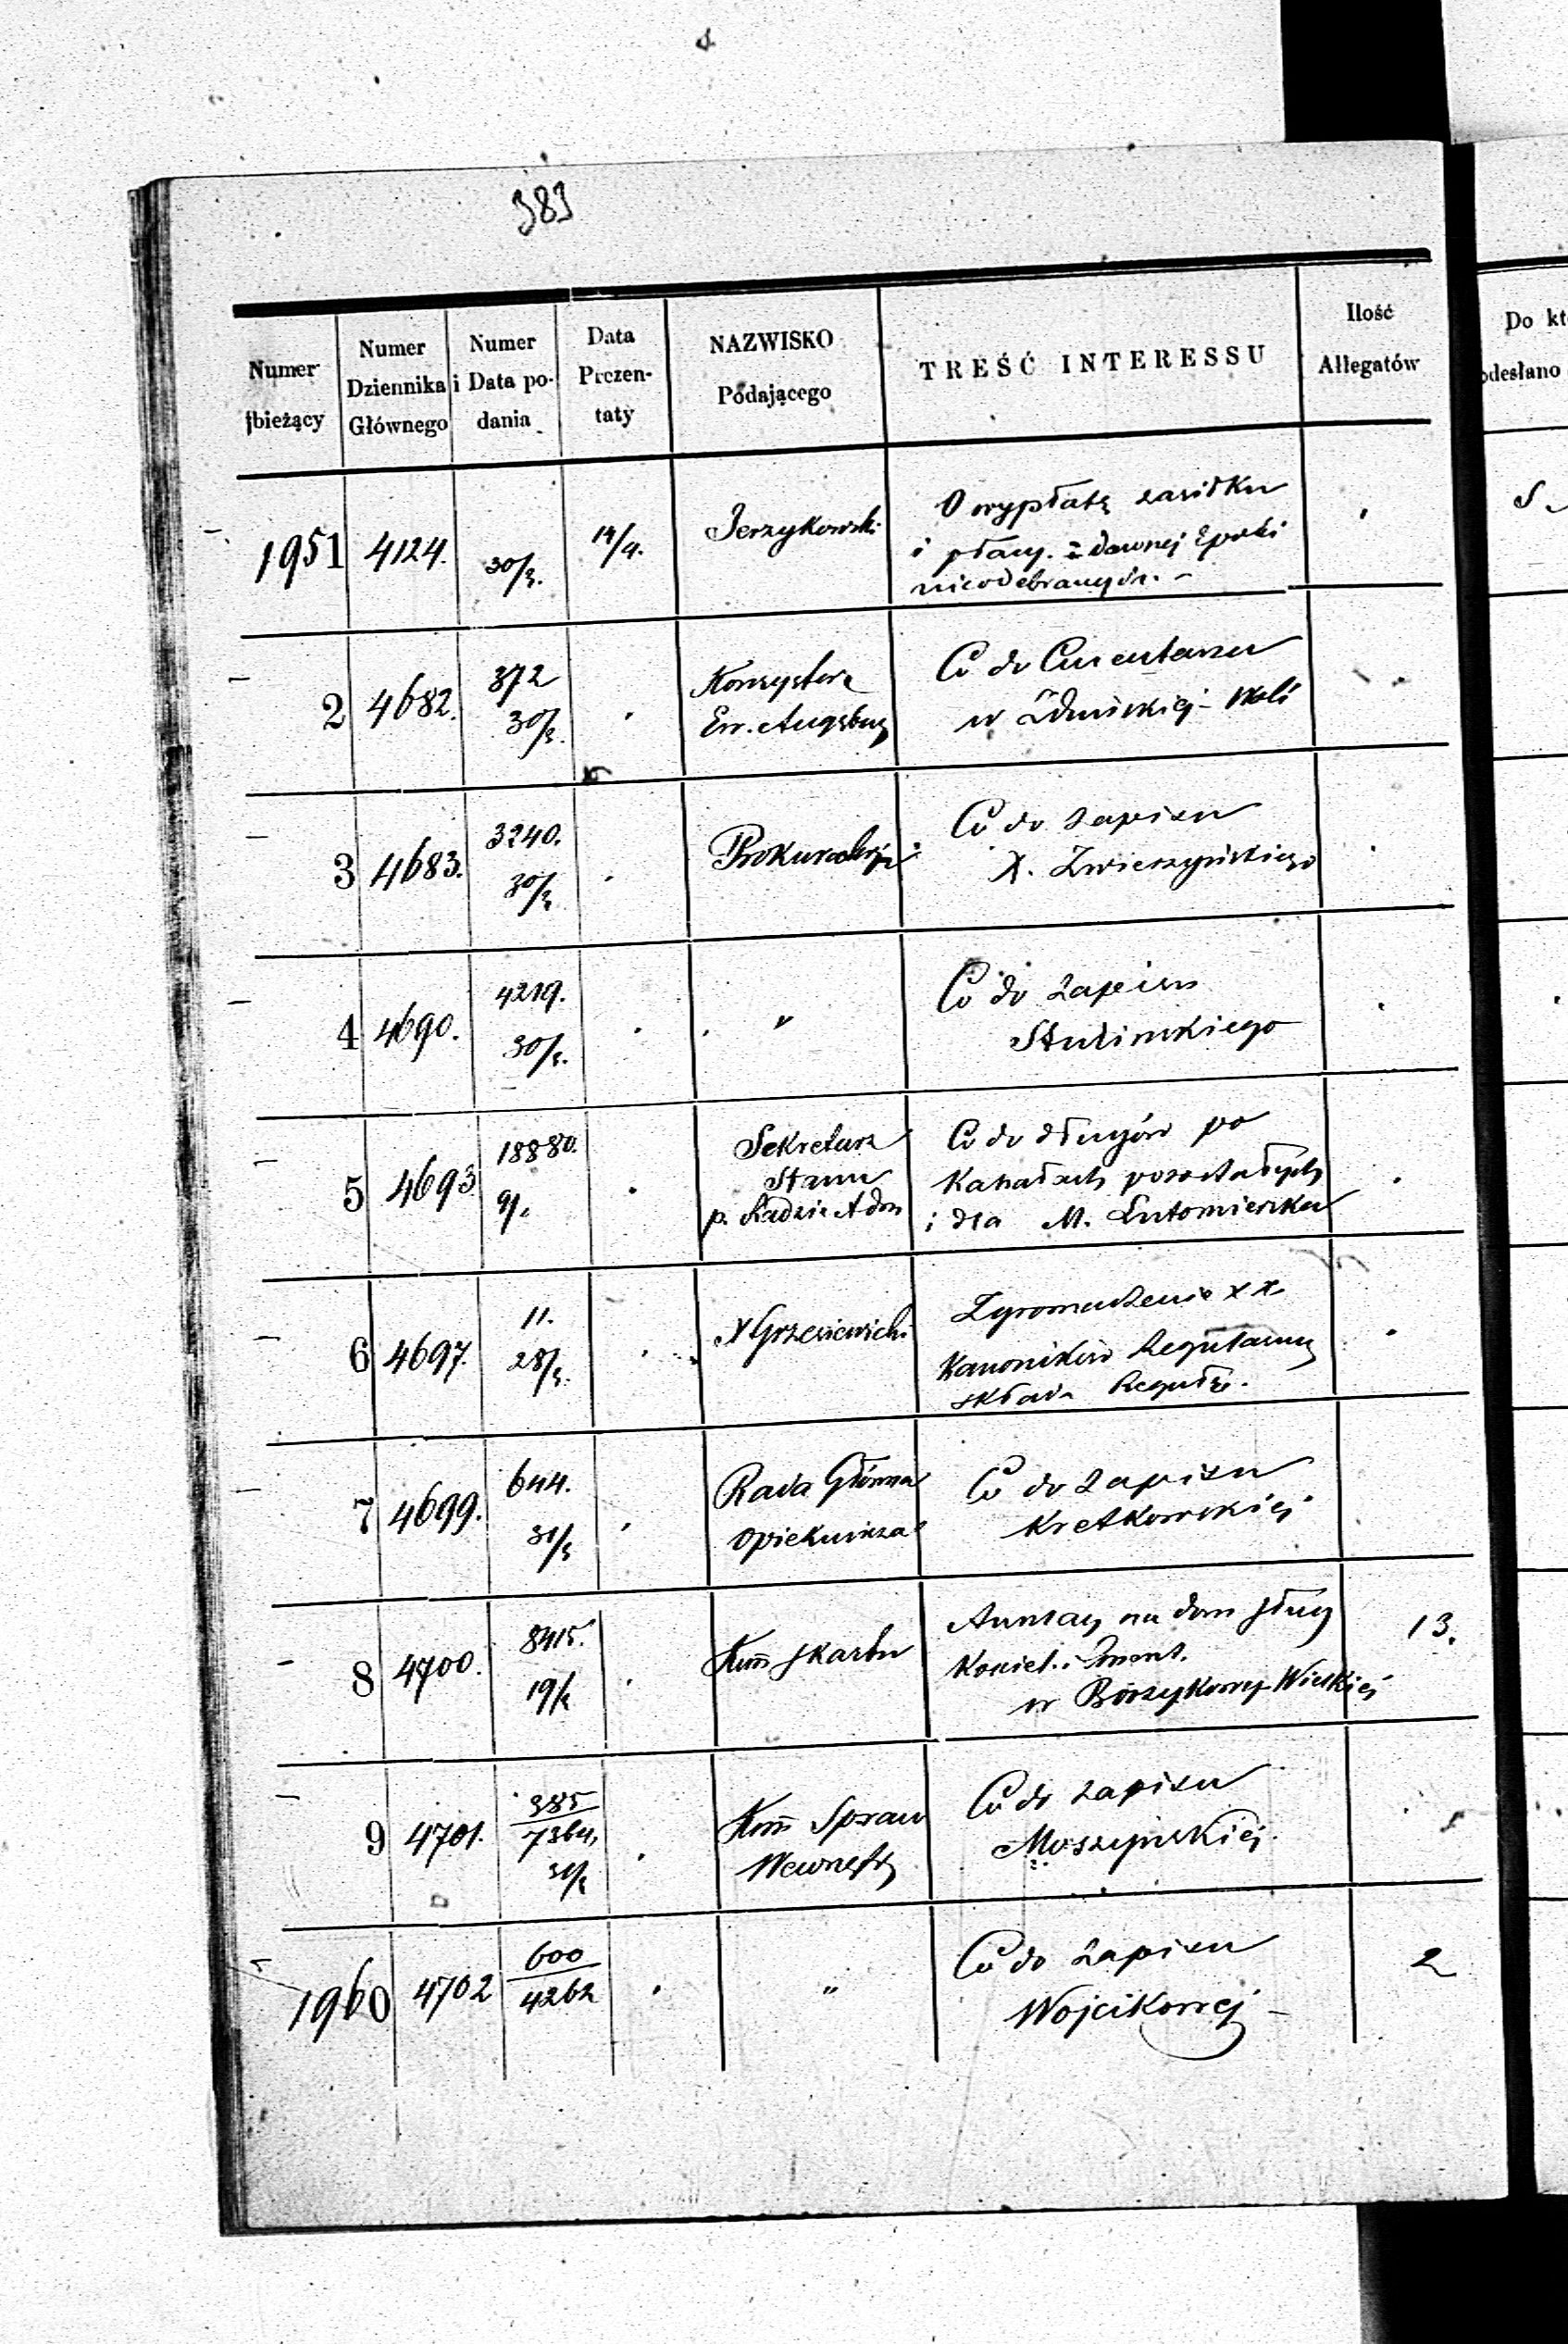 383
Numer bieżący
Numer Dziennika Głównego
Numer i Data podania
Data Prezentaty
NAZWISKO Podającego
TREŚĆ INTERESSU
Ilość Allegatów
Do kt
odesłano
1951 4124. 30/3. 14/4. Jerzykowski O wypłatę zasiłku
i płacy. z dawnej Epoki
nieodebranych. –
2 4682. 372 Konsystorz Co do Cmentarza
30/3. Ew. Augsburg w Zduńskiej-Woli
3 4683. 3240. Prokuratorja Co do zapisu
30/3 X. Zwierzyńskiego
4 4690. 4219. " Co do zapisu
30/3. Stulińskiego
5 4693 18880. Sekretarz Co do długów po
9/. Stanu Kahałach pozostałych
p. Radzie Adm i dla M. Lutomierska
6 4697. 11. X Grzesiewicki Zgromadzenie XX
28/3. Kanoników Regularny
składa Regułę.
7 4699. 644. Rada Główna Co do zapisu
31/3 Opiekuńcza Kretkowskiej
8 4700. 8415. Kom Skarbu na dom 13.
19/3 w Borzykowej Wielkiej
9 4701. 385 Kom Spraw Co do zapisu
7364, Wewnętrz Moszyńskiej.
31/3
1960 4702 600 " Co do zapisu 2
4262 Wojcikowej –